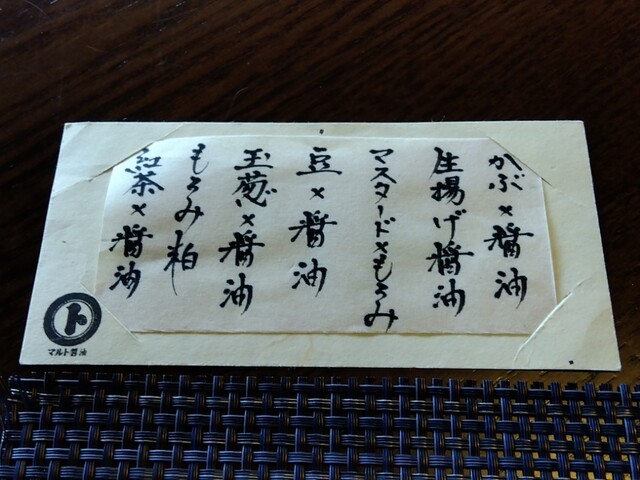 かぶ×醤油
生揚げ醤油
マスタード×もろみ
豆×醤油
玉葱×醤油
もろみ粕
紅茶×醤油
ト
マルト醤油